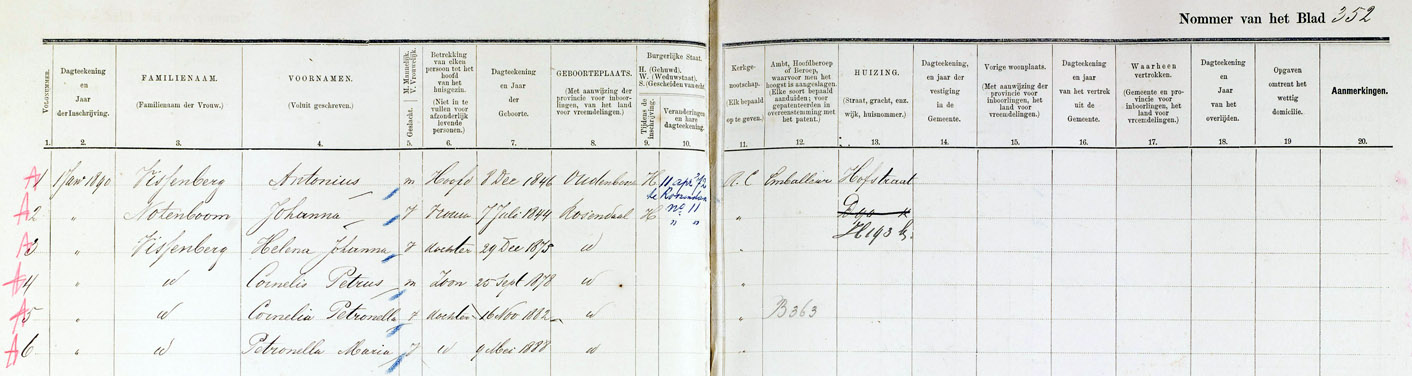 Nommer van het Blad 352
VOLGNUMMER.
Dagteekening
en
Jaar
der Inschrijving.
FAMILIENAAM.
(Familienaam der Vrouw.)
VOORNAMEN.
(Voluit geschreven.)
M. Mannelijk.
V. Vrouwelijk.
Geslacht.
Betrekking
van elken
persoon tot het
hoofd
van het
huisgezin.
(Niet in te
vullen voor
afzonderlijk
levende
personen.)
Dagteekening
en
Jaar
der
Geboorte.
GEBOORTEPLAATS.
(Met aanwijzing der
provincie voor inboor-
lingen, van het land
voor vreemdelingen.)
Burgerlijke Staat.
H. (Gehuwd).
W. (Weduwstaat).
S. (Gescheiden van echt.)
Tijdens de
inschrijving.
Veranderingen
en hare
dagteekening.
Kerkge-
nootschap.
(Elk bepaald
op te geven.)
Ambt, Hoofdberoep
of Beroep,
waarvoor men het
hoogst is aangeslagen.
(Elke soort bepaald
aanduiden; voor
gepatenteerden in
overeenstemming met
het patent.)
HUIZING.
(Straat, gracht, enz.
wijk, huisnommer.)
Dagteekening,
en jaar der
vestiging
in de
Gemeente.
Vorige woonplaats.
(Met aanwijzing der
provincie voor
inboorlingen, het
land voor
vreemdelingen.)
Dagteekening
en jaar
van het vertrek
uit de
Gemeente.
Waarheen
vertrokken.
(Gemeente en pro-
vincie voor
inboorlingen, het
land voor
vreemdelingen.)
Dagteekening
en
Jaar
van het
overlijden.
Opgaven
omtrent het
wettig
domicilie.
Aanmerkingen.
1. 2. 3. 4. 5. 6. 7. 8. 9. 10. 11. 12. 13. 14. 15. 16. 17. 18 19 20.
A 1 1 Janr 1890 Vissenberg Antonius m Hoofd 8 Dec 1846 Oudenbosch H 11 apr R. C Emballeur Hofstraat
A 2 " Notenboom Johanna V Vrouw 7 Juli 1844 Rosendaal H no 11 "
" "
A 3 " Vissenberg Helena Johanna V dochter 29 Dec 1875 id " H193
A 4 " id Cornelis Petrus m Zoon 25 Sept 1878 id "
A 5 " id Cornelia Petronella V dochter 16 Nov 1882 id " B363
A 6 " id Petronella Maria V id 9 Mei 1888 id "